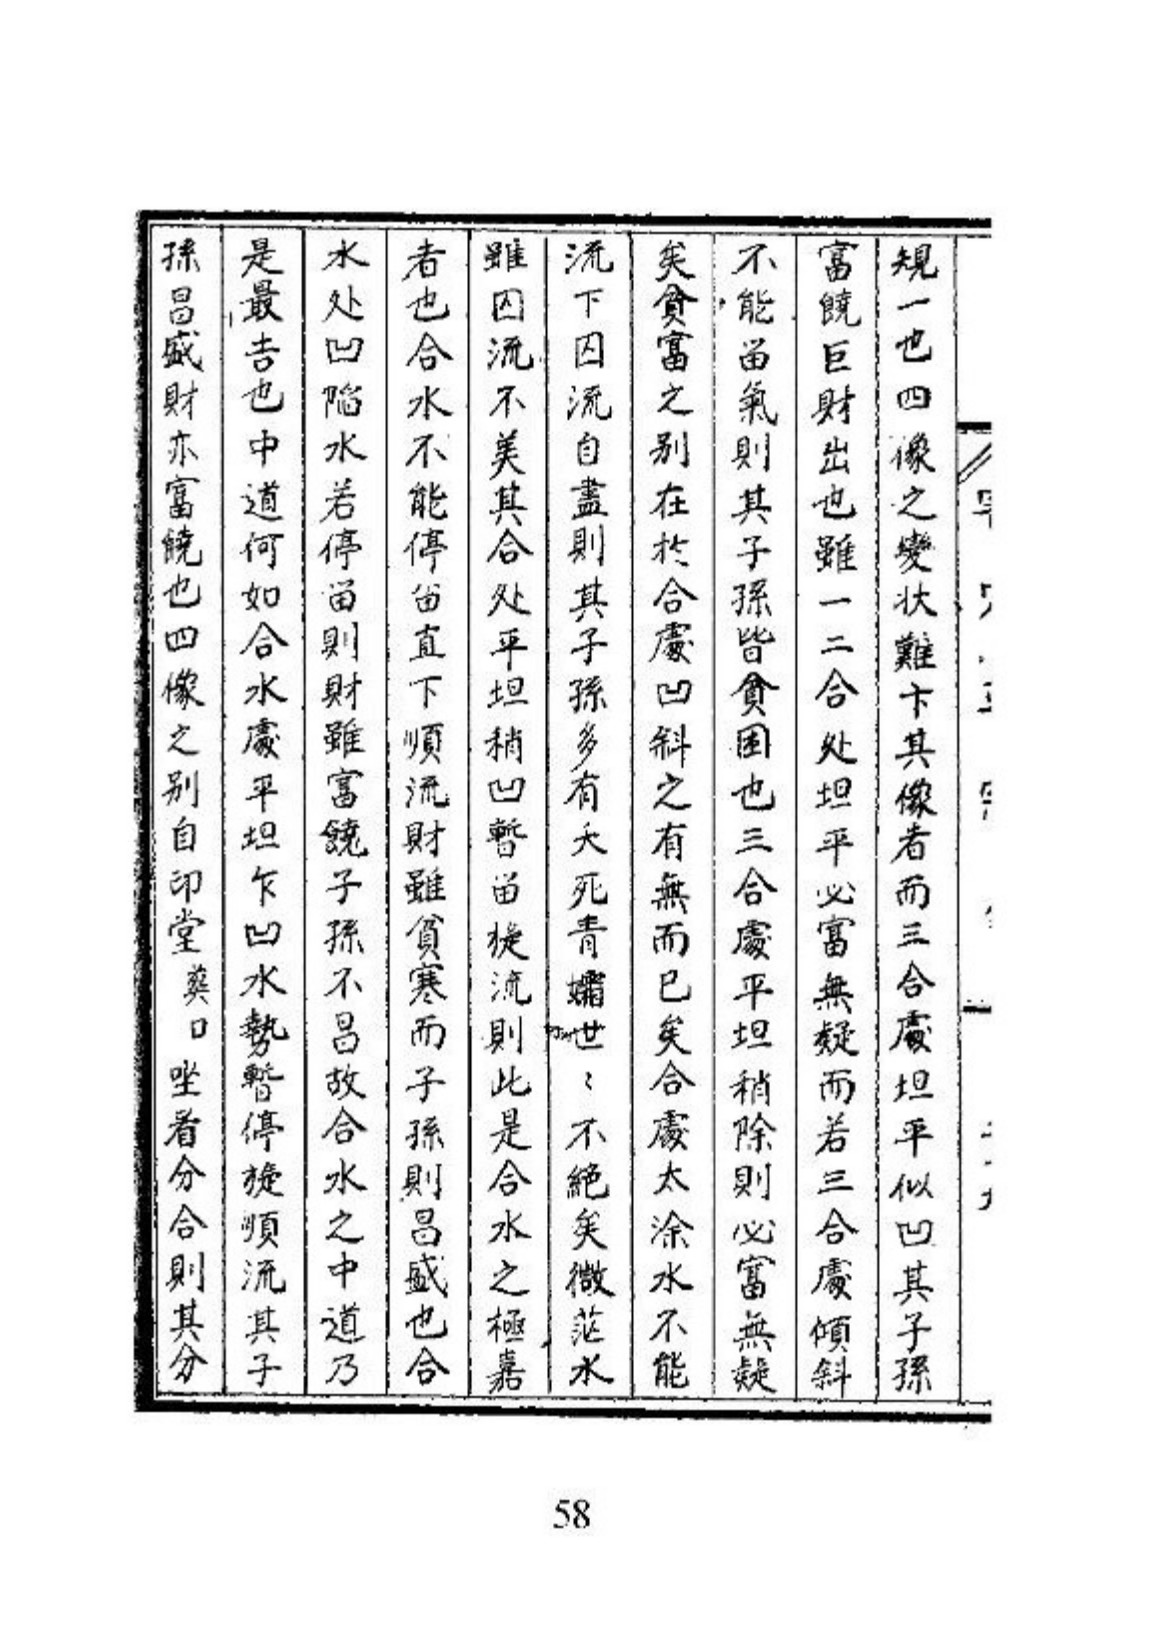 規一也四像之變状難卞其像者而三合處坦平似凹其子孫
富饒巨財出也雖一二合处坦平必富無疑而若三合處傾斜
不能畄氣則其子孫皆貧困也三合處平坦稍除則必富無疑
矣貧富之别在於合處凹斜之有無而已矣合處太涂水不能
流下囚流自盡則其子孫多有夭死青孀世〻不絕矣微茫水
雖囚流不美其合处平坦稍凹暫畄旋流則此是合水之極嘉
者也合水不能停畄直下順流財雖貧寒而子孫則昌盛也合
水处凹陥水若停畄則財雖富饒子孫不昌故合水之中道乃
是最吉也中道何如合水處平坦乍凹水勢暫停旋順流其子
孫昌盛財亦富饒也四像之别自印堂葬口坐看分合則其分
58